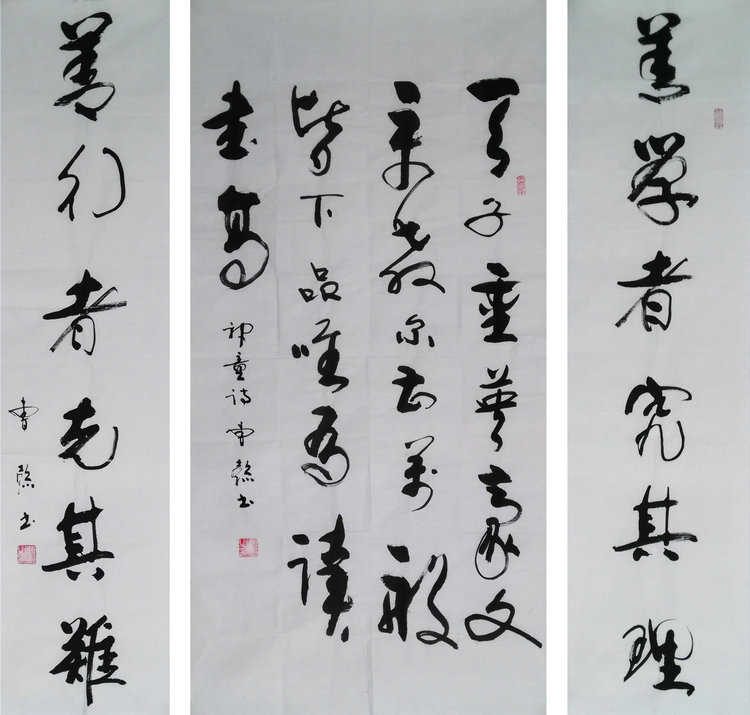 善學者究其理
天子重英豪文
章教尔曹萬般
皆下品唯有讀
書高
神童诗 曹 书
善行者克其難
曹 书